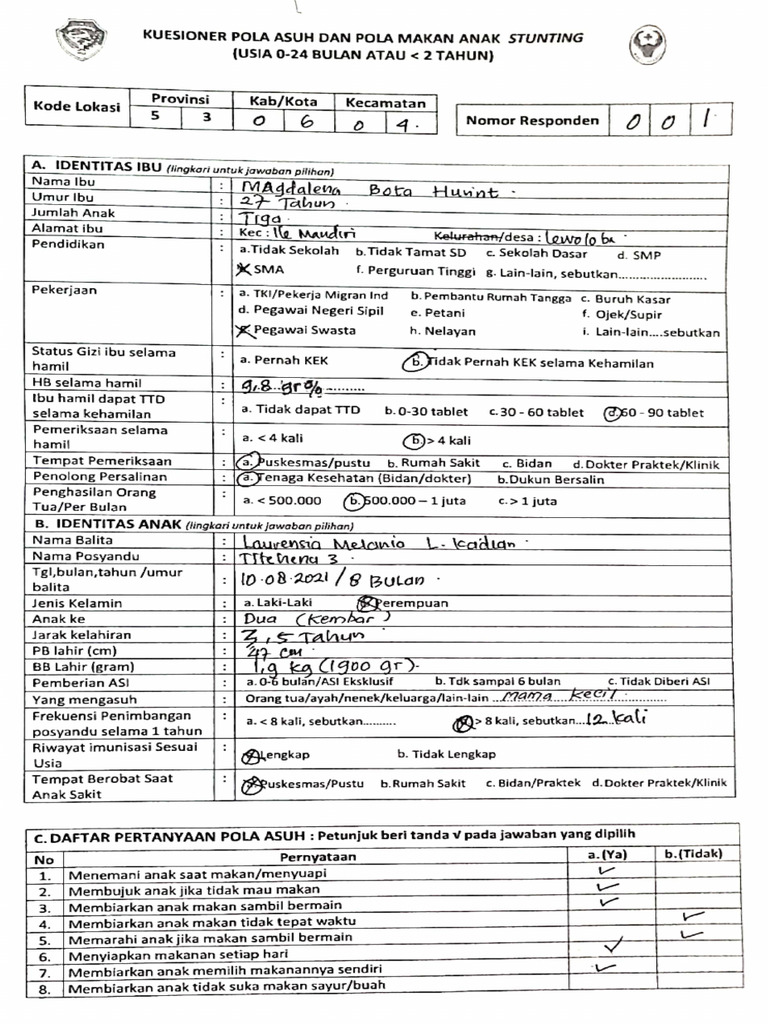 KUESIONER POLA ASUH DAN POLA MAKAN ANAK STUNTING
(USIA 0-24 BULAN ATAU < 2 TAHUN)
Kode Lokasi Provinsi Kab/Kota Kecamatan
5 3 0 6 0 4.
Nomor Responden 0 0 1.
A. IDENTITAS IBU (lingkari untuk jawaban pilihan)
Nama Ibu : MAgdalena Bota Hurint.
Umur Ibu : 27 Tahun.
Jumlah Anak : Tiga.
Alamat ibu : Kec : Ile Mandiri Kelurahan/desa : Lewoloba
Pendidikan : a.Tidak Sekolah b.Tidak Tamat SD c. Sekolah Dasar d. SMP
SMA f. Perguruan Tinggi g. Lain-lain, sebutkan......................
Pekerjaan : a. TKI/Pekerja Migran Ind b. Pembantu Rumah Tangga c. Buruh Kasar
d. Pegawai Negeri Sipil e. Petani f. Ojek/Supir
Pegawai Swasta h. Nelayan i. Lain-lain....sebutkan
Status Gizi ibu selama hamil : a. Pernah KEK b. Tidak Pernah KEK selama Kehamilan
HB selama hamil : 9,8 gr% ..........
Ibu hamil dapat TTD selama kehamilan : a. Tidak dapat TTD b. 0-30 tablet c. 30 - 60 tablet d. 60 - 90 tablet
Pemeriksaan selama hamil : a. < 4 kali b. > 4 kali
Tempat Pemeriksaan : a. Puskesmas/pustu b. Rumah Sakit c. Bidan d. Dokter Praktek/Klinik
Penolong Persalinan : a. Tenaga Kesehatan (Bidan/dokter) b.Dukun Bersalin
Penghasilan Orang Tua/Per Bulan : a. < 500.000 b. 500.000 – 1 juta c. > 1 juta
B. IDENTITAS ANAK (lingkari untuk jawaban pilihan)
Nama Balita : Laurensia Melania L. Kadian
Nama Posyandu : Titehena 3.
Tgl,bulan,tahun /umur balita : 10.08.2021 / 8 Bulan.
Jenis Kelamin : a. Laki-Laki Perempuan
Anak ke : Dua (Kembar)
Jarak kelahiran : 3,5 Tahun
PB lahir (cm) : 47 cm.
BB Lahir (gram) : 1,9 kg (1900 gr).
Pemberian ASI : a. 0-6 bulan/ASI Eksklusif b. Tdk sampai 6 bulan c. Tidak Diberi ASI
Yang mengasuh : Orang tua/ayah/nenek/keluarga/lain-lain ...mama kecil
Frekuensi Penimbangan posyandu selama 1 tahun : a. < 8 kali, sebutkan.......... > 8 kali, sebutkan...12 kali
Riwayat imunisasi Sesuai Usia : Lengkap b. Tidak Lengkap
Tempat Berobat Saat Anak Sakit : Puskesmas/Pustu b. Rumah Sakit c. Bidan/Praktek d. Dokter Praktek/Klinik
C. DAFTAR PERTANYAAN POLA ASUH : Petunjuk beri tanda √ pada jawaban yang dipilih
No Pernyataan a.(Ya) b.(Tidak)
1. Menemani anak saat makan/menyuapi ✓
2. Membujuk anak jika tidak mau makan ✓
3. Membiarkan anak makan sambil bermain ✓
4. Membiarkan anak makan tidak tepat waktu ✓
5. Memarahi anak jika makan sambil bermain ✓
6. Menyiapkan makanan setiap hari ✓
7. Membiarkan anak memilih makanannya sendiri ✓
8. Membiarkan anak tidak suka makan sayur/buah